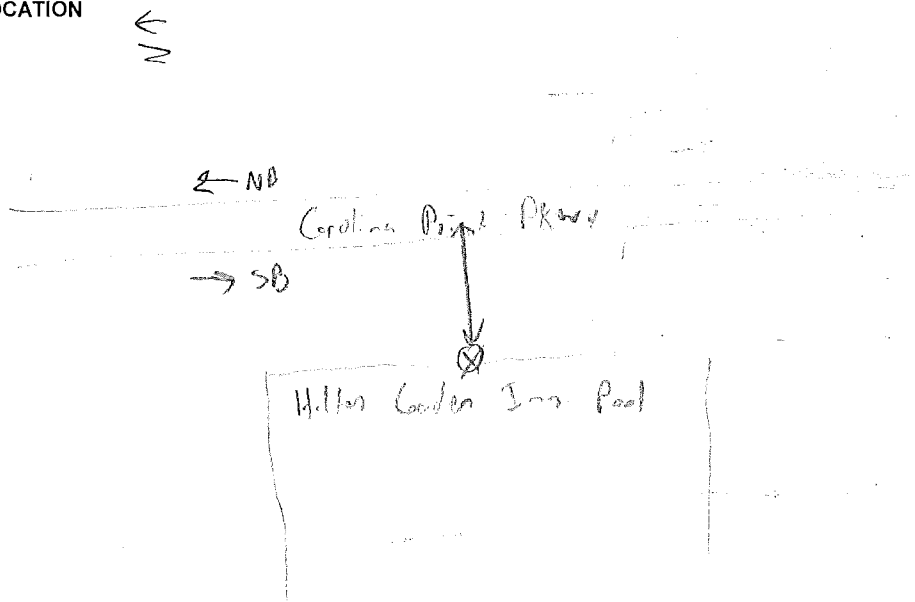 OCATION
← N
← NB
Carolina Point Pkwy
→ SB
Hilton Garden Inn Pool